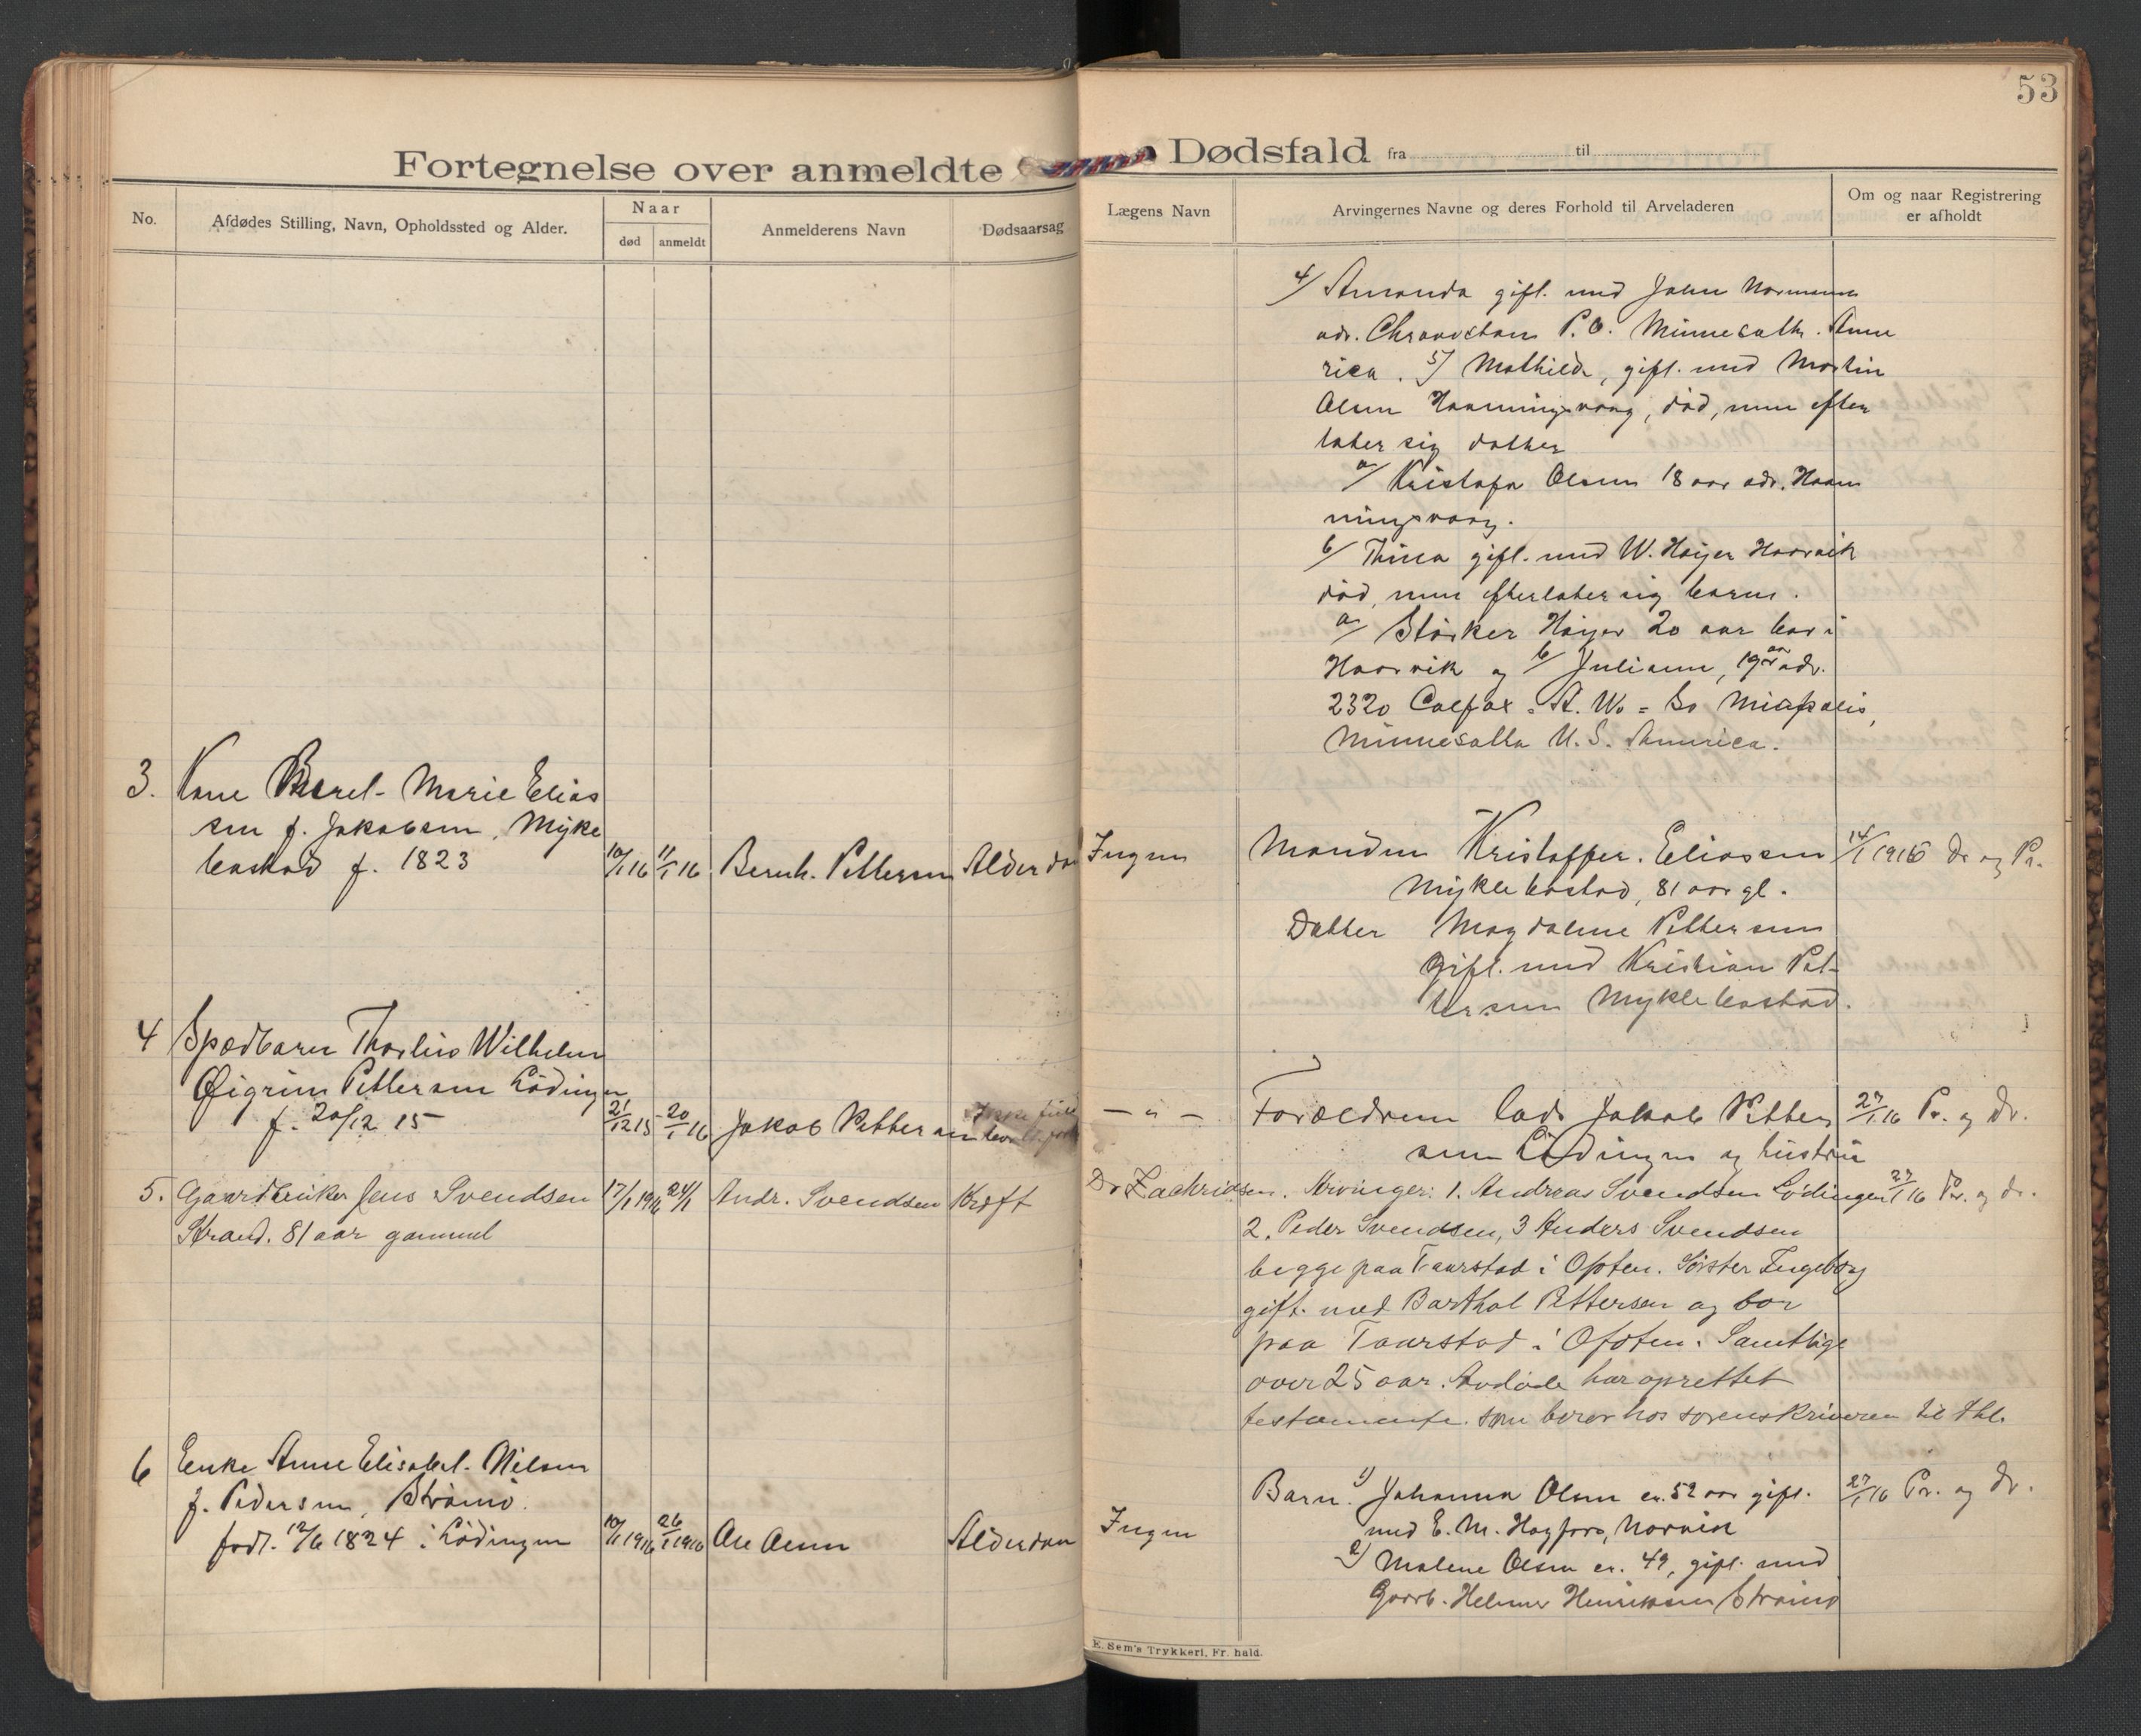 53
Fortegnelse over anmeldte Dødsfald fra til
No.
Afdødes Stilling, Navn, Opholdssted og Alder.
Naar
død
anmeldt
Anmelderens Navn
Dødsaarsag
Lægens Navn
Arvingernes Navne og deres Forhold til Arveladeren
Om og naar Registrering
er afholdt
4/ Amanda gift. med John Normann
adr. P.O. Minnesalth. Ame
rica. 5/ Mathilde, gift. med Martin
Olsen Haanningsvaag, død, men efter
later sig datter
a/ Kristofa Olsen 18 aar adr. Haan
ningsvaag.
6/ Thina gift. med W. Høyer Haarvik
død, men efterlater sig barn.
a/ Størker Høyer 20 aar bor i
Haarvik og b/ Juliane, 19 aar adr.
2320 Colfax = St. Wo = So Miapolis,
Minnesalta U.S. America.
3. Kone Marie Elias
sen f. Jakobsen, Mykle
bostad f. 1823
10/1 16
11/1 16
Bernh. Pettersen
Alderdom
Ingen
Manden Kristoffer Eliassen
Myklebostad, 81 aar gl.
Datter Magdalene Pettersen
gift. med Kristian Pet-
tersen Myklebostad.
14/1 1916 Dr og Pr.
4 Spædbarn Thorleis Wilhelm
Øigrim Pettersen Lødingen
f. 20/12 15
21/12 15
20/1 16
Jakob Pettersen
— " —
Forældrene Lods Jakob Petter
sen Lødingen og hustru
27/1 16 Pr. og Dr.
5. Gaardbruker Jens Svendsen
Strand. 81 aar gammel
17/1 1916
24/1
Andr. Svendsen
Kræft
Dr Zachriassen.
Arvinger: 1. Andreas Svendsen Lødingen
2. Peder Svendsen, 3 Anders Svendsen
begge paa Taarstad i Ofoten. Søster Ingeborg
gift. med Barthol Pettersen og bor
paa Taarstad i Ofoten. Samtlige
over 25 aar. Avdøde har oprettet
testamente som beror hos sorenskriveren til thl.
27/1 16 Pr. og dr.
6 Enke Anne Elisabet Nilsen
f. Pedersen, Strømø.
født. 12/6 1824 i Lødingen
10/1 1916
26/1 1916
Ole Olsen
Alderdom
Ingen
Barn: 1) Johanna Olsen er 52 aar gift.
med E. M. Hagfors, Narvik
2) Malene Olsen er 49, gift. med
Gaarb. Helmer Henriksen Strømø
27/1 16 Pr. og Dr.
E. Sem's Trykkeri, Fr. hald.